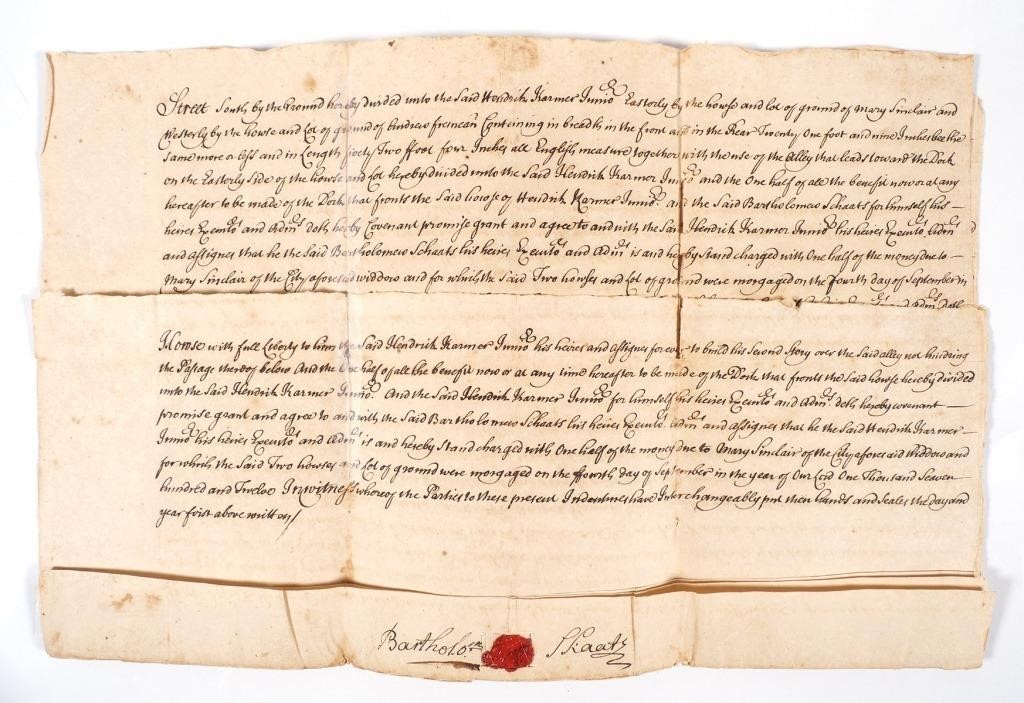 Street South by the Ground hereby divided unto the Said Hendrik Karmer Junior Easterly by the howse and Lot of ground of Mary Sinclair and
Westerly by the howse and Lot of ground of Andrew fresneau Conteining in breadth in the front and in the Rear Twenty One foot and nine Inches bee the
same more or less and in Length Two ffoot four Inches all English measure together with the use of the Alley that leads toward the Dock
on the Easterly Side of the howse and Lot hereby divided unto the Said Hendrik Karmer Junior and the One half of all the benefit now or at any
hereafter to be made of the Dock that fronts the Said howse of Hendrik Karmer Junior and the Said Bartholomew Schaats for himself his
heires Executors and Admrs doth hereby Covenant promise grant and agree to and with the Said Hendrik Karmer Junior his heires Executors Admrs
and assignes that he the Said Bartholomew Schaats his heires Executors and Admrs is and hereby Stand charged with One half of the money due to
Mary Sinclair of the City aforesaid widdow and for which the Said Two howses and Lot of ground were morgaged on the fourth day of September in
and Admrs doth
Howse with full Liberty to him the Said Hendrik Karmer Junior his heires and assignes for ever to build his Second Story over the Said alley not hindring
the Passage thereof below And the One half of all the benefit now or at any time hereafter to be made of the Dock that fronts the Said howse hereby divided
unto the Said Hendrik Karmer Junior. And the Said Hendrik Karmer Junior for himself his heires Executors and Admrs doth hereby covenant
promise grant and agree to and with the Said Bartholomew Schaats his heires Executors Admrs and assignes that he the Said Hendrik Karmer
Junior his heires Executors and Admrs is and hereby Stand charged with One half of the money due to Mary Sinclair of the City aforesaid Widdow and
for which the Said Two howses and Lot of ground were morgaged on the ffourth day of September in the year of Our Lord One Thousand Seaven
hundred and Twelve In witness whereof the Parties to these present Indentures have Interchangeably put their hands and Seales the day and
year first above written/
Bartholo:m Skaats